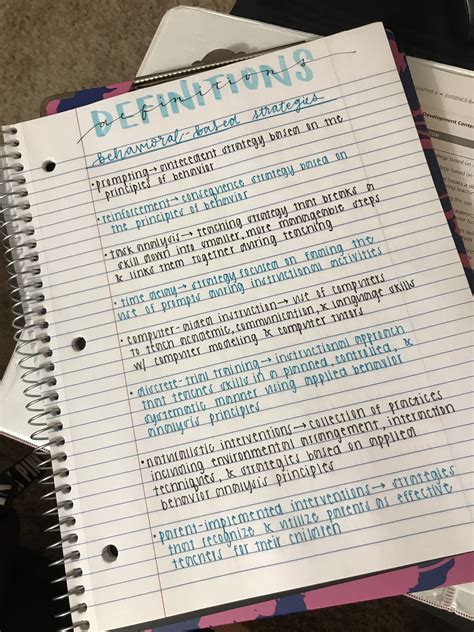 DEFINITIONS
definitions
behavioral-based strategies
• prompting → antecement strategy based on the
principles of behavior
• reinforcement → consequence strategy based on
the principles of behavior
• task analysis → teaching strategy that breaks a
skill down into smaller, more manageable steps
& links them together during teaching
• time delay → strategy focused on fading the
use of prompts during instructional activities
• computer-aided instruction → use of computers
to teach academic, communication, & language skills
w/ computer modeling & computer tutors
• discrete-trial training → instructional approach
that teaches skills in a planned, controlled, &
systematic manner using applied behavior
analysis principles
• naturalistic interventions → collection of practices
including environmental arrangement, interaction
techniques, & strategies based on applied
behavior analysis principles
• parent-implemented interventions → strategies
that recognize & utilize parents as effective
teachers for their children
CHAPTER 2 • EVIDENCE
Development Center